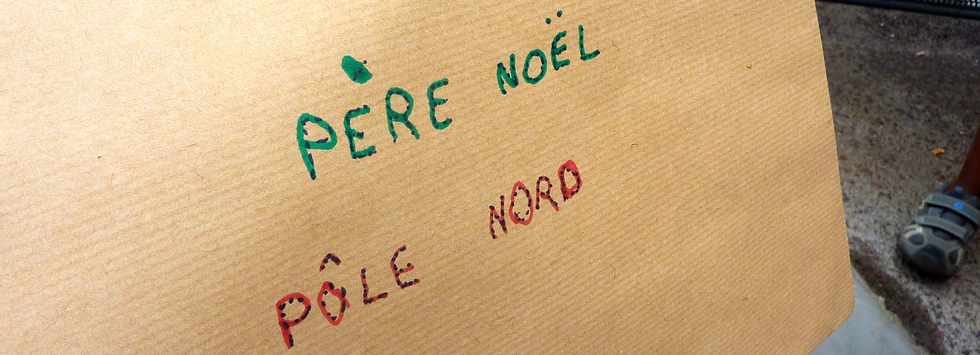 PÈRE NOËL
PÔLE NORD